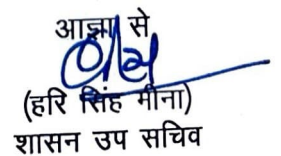 आज्ञा से
(हरि सिंह मीना)
शासन उप सचिव